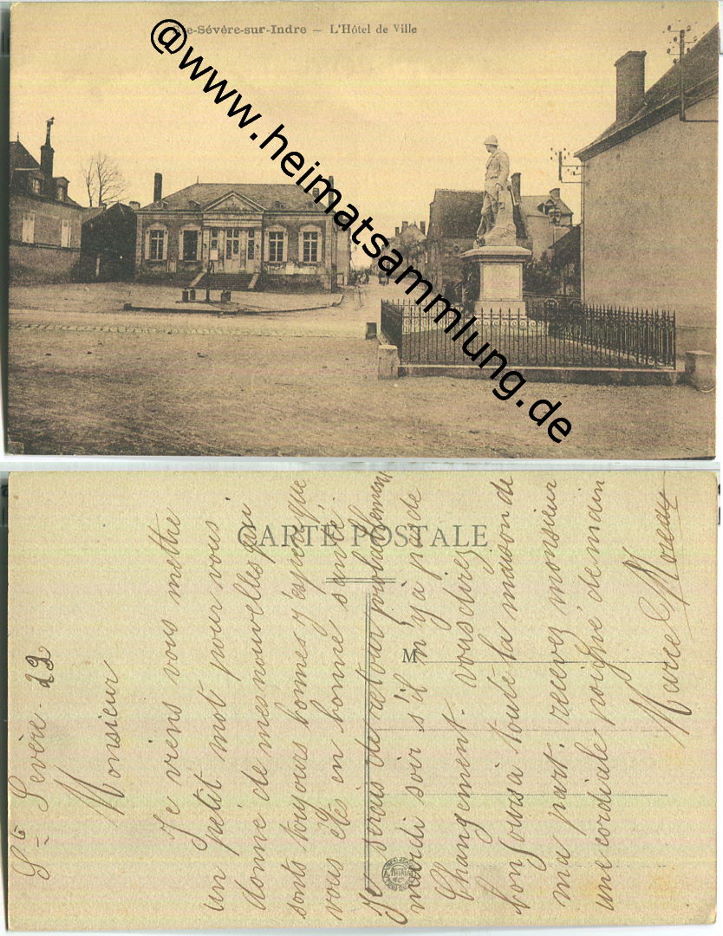 Ste-Sévère-sur-Indre — L'Hôtel de Ville
@www.heimatsammlung.de
CARTE POSTALE
M
Ste Sevère. 22
Monsieur
Je viens vous mettre
un petit mot pour vous
donné de mes nouvelles qui
sonts toujours bonnes j'espère que
vous êtes en bonne santé.
Je serais de retour probablement
mardi soir s'il n'y à pas de
Changement. vous direz
bonjours à toute la maison de
ma part. recevez monsieur
une cordiale poigné de main
Marcel Moreau